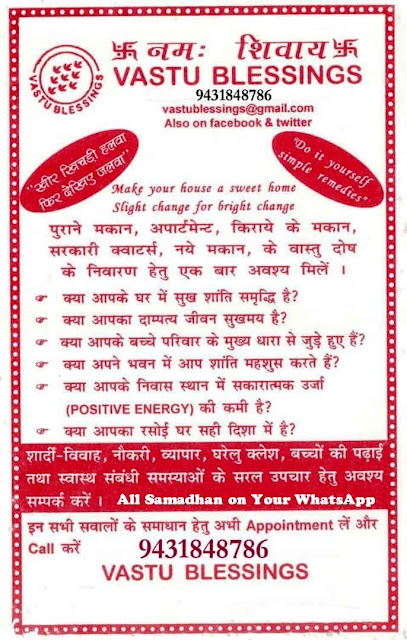 卐 नमः शिवाय 卐
VASTU BLESSINGS
VASTU BLESSINGS
9431848786
vastublessings@gmail.com
Also on facebook & twitter
"खीर खिचड़ी हलवा
फिर देखिए जलवा"
"Do it yourself
simple remedies"
Make your house a sweet home
Slight change for bright change
पुराने मकान, अपार्टमेन्ट, किराये के मकान,
सरकारी क्वाटर्स, नये मकान, के वास्तु दोष
के निवारण हेतु एक बार अवश्य मिलें ।
☞ क्या आपके घर में सुख शांति समृद्धि है?
☞ क्या आपका दाम्पत्य जीवन सुखमय है?
☞ क्या आपके बच्चे परिवार के मुख्य धारा से जुड़े हुए हैं?
☞ क्या अपने भवन में आप शांति महशुस करते हैं?
☞ क्या आपके निवास स्थान में सकारात्मक उर्जा
(POSITIVE ENERGY) की कमी है?
☞ क्या आपका रसोई घर सही दिशा में है?
शार्दी-विवाह, नौकरी, व्यापार, घरेलु क्लेश, बच्चों की पढ़ाई
तथा स्वास्थ संबंधी समस्याओं के सरल उपचार हेतु अवश्य
सम्पर्क करें । All Samadhan on Your WhatsApp
इन सभी सवालों के समाधान हेतु अभी Appointment लें और
Call करें 9431848786
VASTU BLESSINGS